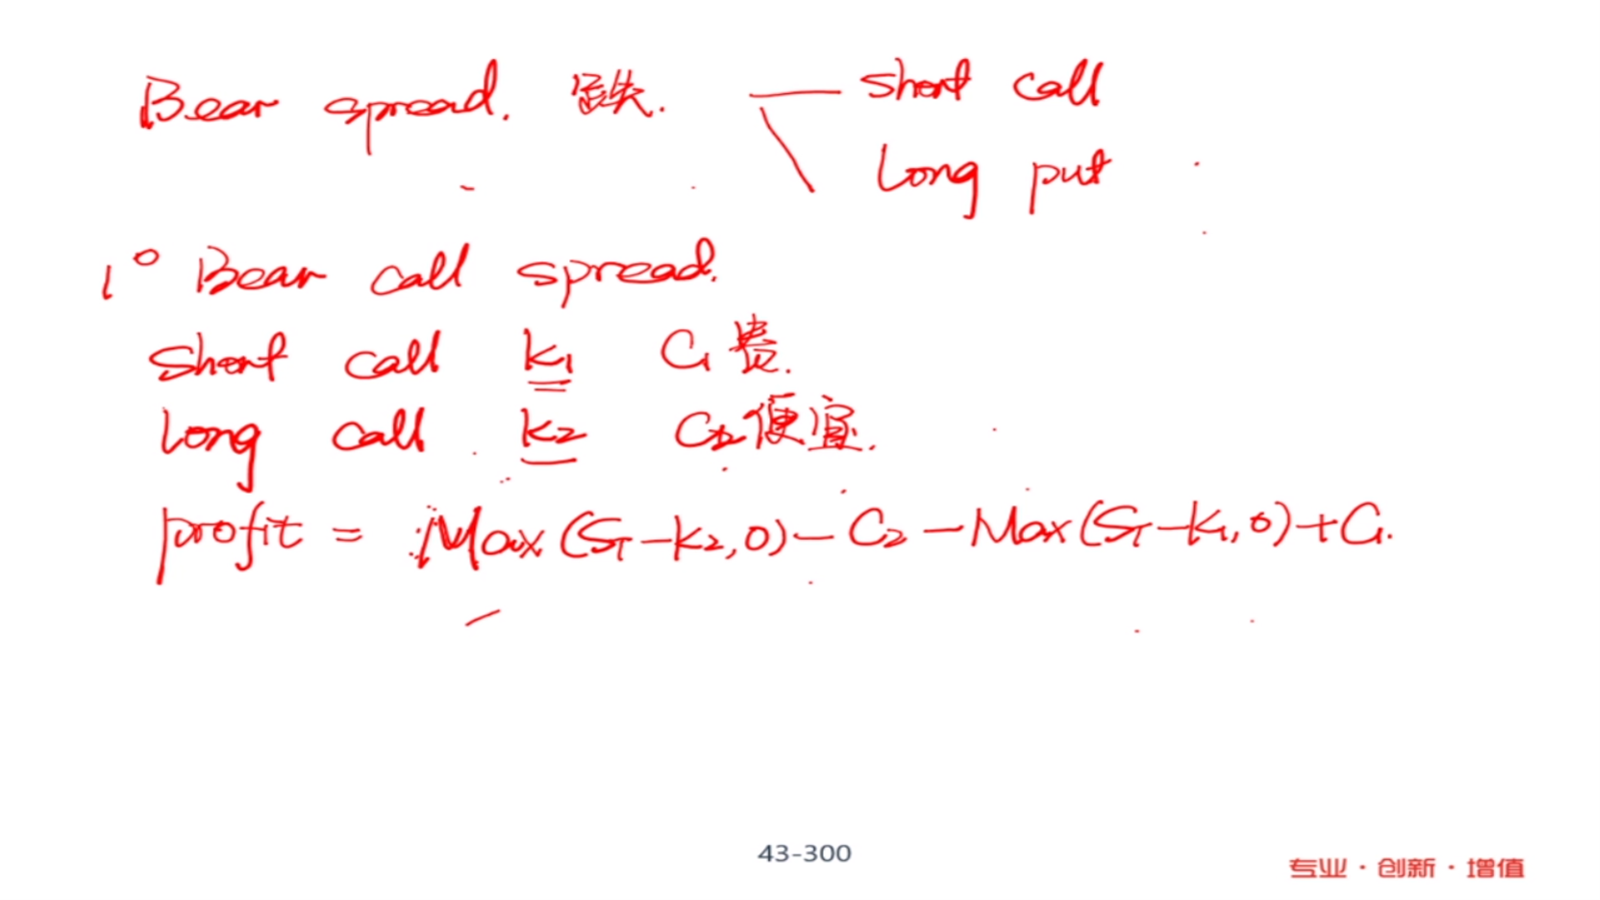 Bear spread. 跌. short call
Long put
1° Bear call spread.
Short call K1 C1 贵.
Long call K2 C2 便宜.
profit = Max(ST-K2,0)-C2-Max(ST-K1,0)+C1.
43-300
专业·创新·增值